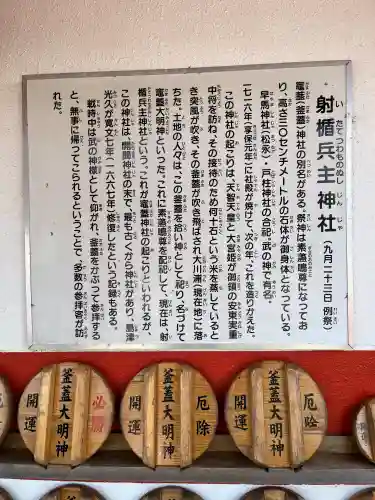 射楯兵主神社 (九月二十三日 例祭)
いたてつわものぬしじんじゃ
竈蓋(釜蓋)神社の別名がある。祭神は素盞鳴尊になってお
り、高さ三〇センチメートルの石体が御身体となっている。
早馬神社(松永)、戸柱神社の合祀。武の神で有名。
一七一六年(享保元年)に社殿が焼けて、次の年、これを造りかえた。
この神社の起こりは、天智天皇と大宮姫が御領の安東実重
中将を訪ね、その接待のため何十石という米を蒸していると
き突風が吹き、その釜蓋が吹き飛ばされ大川浦(現在地)に落
ちた。土地の人々は、この釜蓋を拾い神として祀り、名づけて
竈蓋大明神といった。これに素盞鳴尊を配祀して、現在は、射
楯兵主神社という。これが竈蓋神社の起こりといわれるが、
この神社は、開聞神社の末で、最も古くから神社があり、島津
光久が寛文七年(一六六七年)修復したという記録もある。
戦時中は武の神様として仰がれ、釜蓋をかぶって参拝する
と、無事に帰ってこられるということで、多数の参拝客が訪
れた。
開運 釜蓋大明神 必
開運 釜蓋大明神 厄除
開運 釜蓋大明神 厄除
開